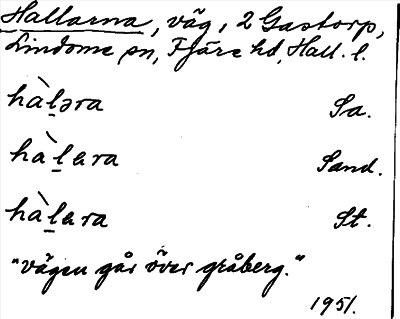 Hallarna, väg, 2 Gastorp,
Lindome sn, Fjäre hd, Hall. l.
hàl̠əra Sa.
hàl̠ɐra Sand.
hàl̠ɐra St.
"vägen går över gråberg."
1951.